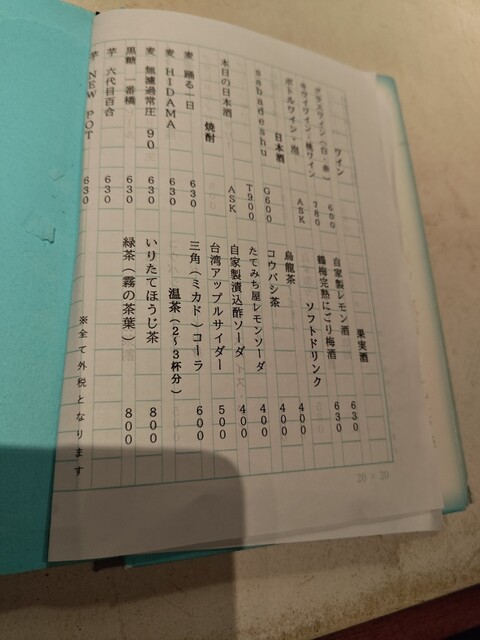 ワイン
グラスワイン（白・赤） 600
キウイワイン・桃ワイン 780
ボトルワイン・泡 ASK
日本酒
sabadeshu G600
T900
本日の日本酒 ASK
焼酎
麦 踊る一日 630
麦 HIDAMA 630
麦 無濾過常圧 90 630
黒糖 一番橋 630
芋 六代目百合 630
芋 NEW POT 630
果実酒
自家製レモン酒 630
鶴梅完熟にごり梅酒 630
ソフトドリンク
烏龍茶 400
コウバシ茶 400
たてみち屋レモンソーダ 400
自家製漬込酢ソーダ 400
台湾アップルサイダー 500
三角（ミカド）コーラ 600
温茶（2～3杯分）
いりたてほうじ茶 800
緑茶（霧の茶葉） 800
※全て外税となります
20×20